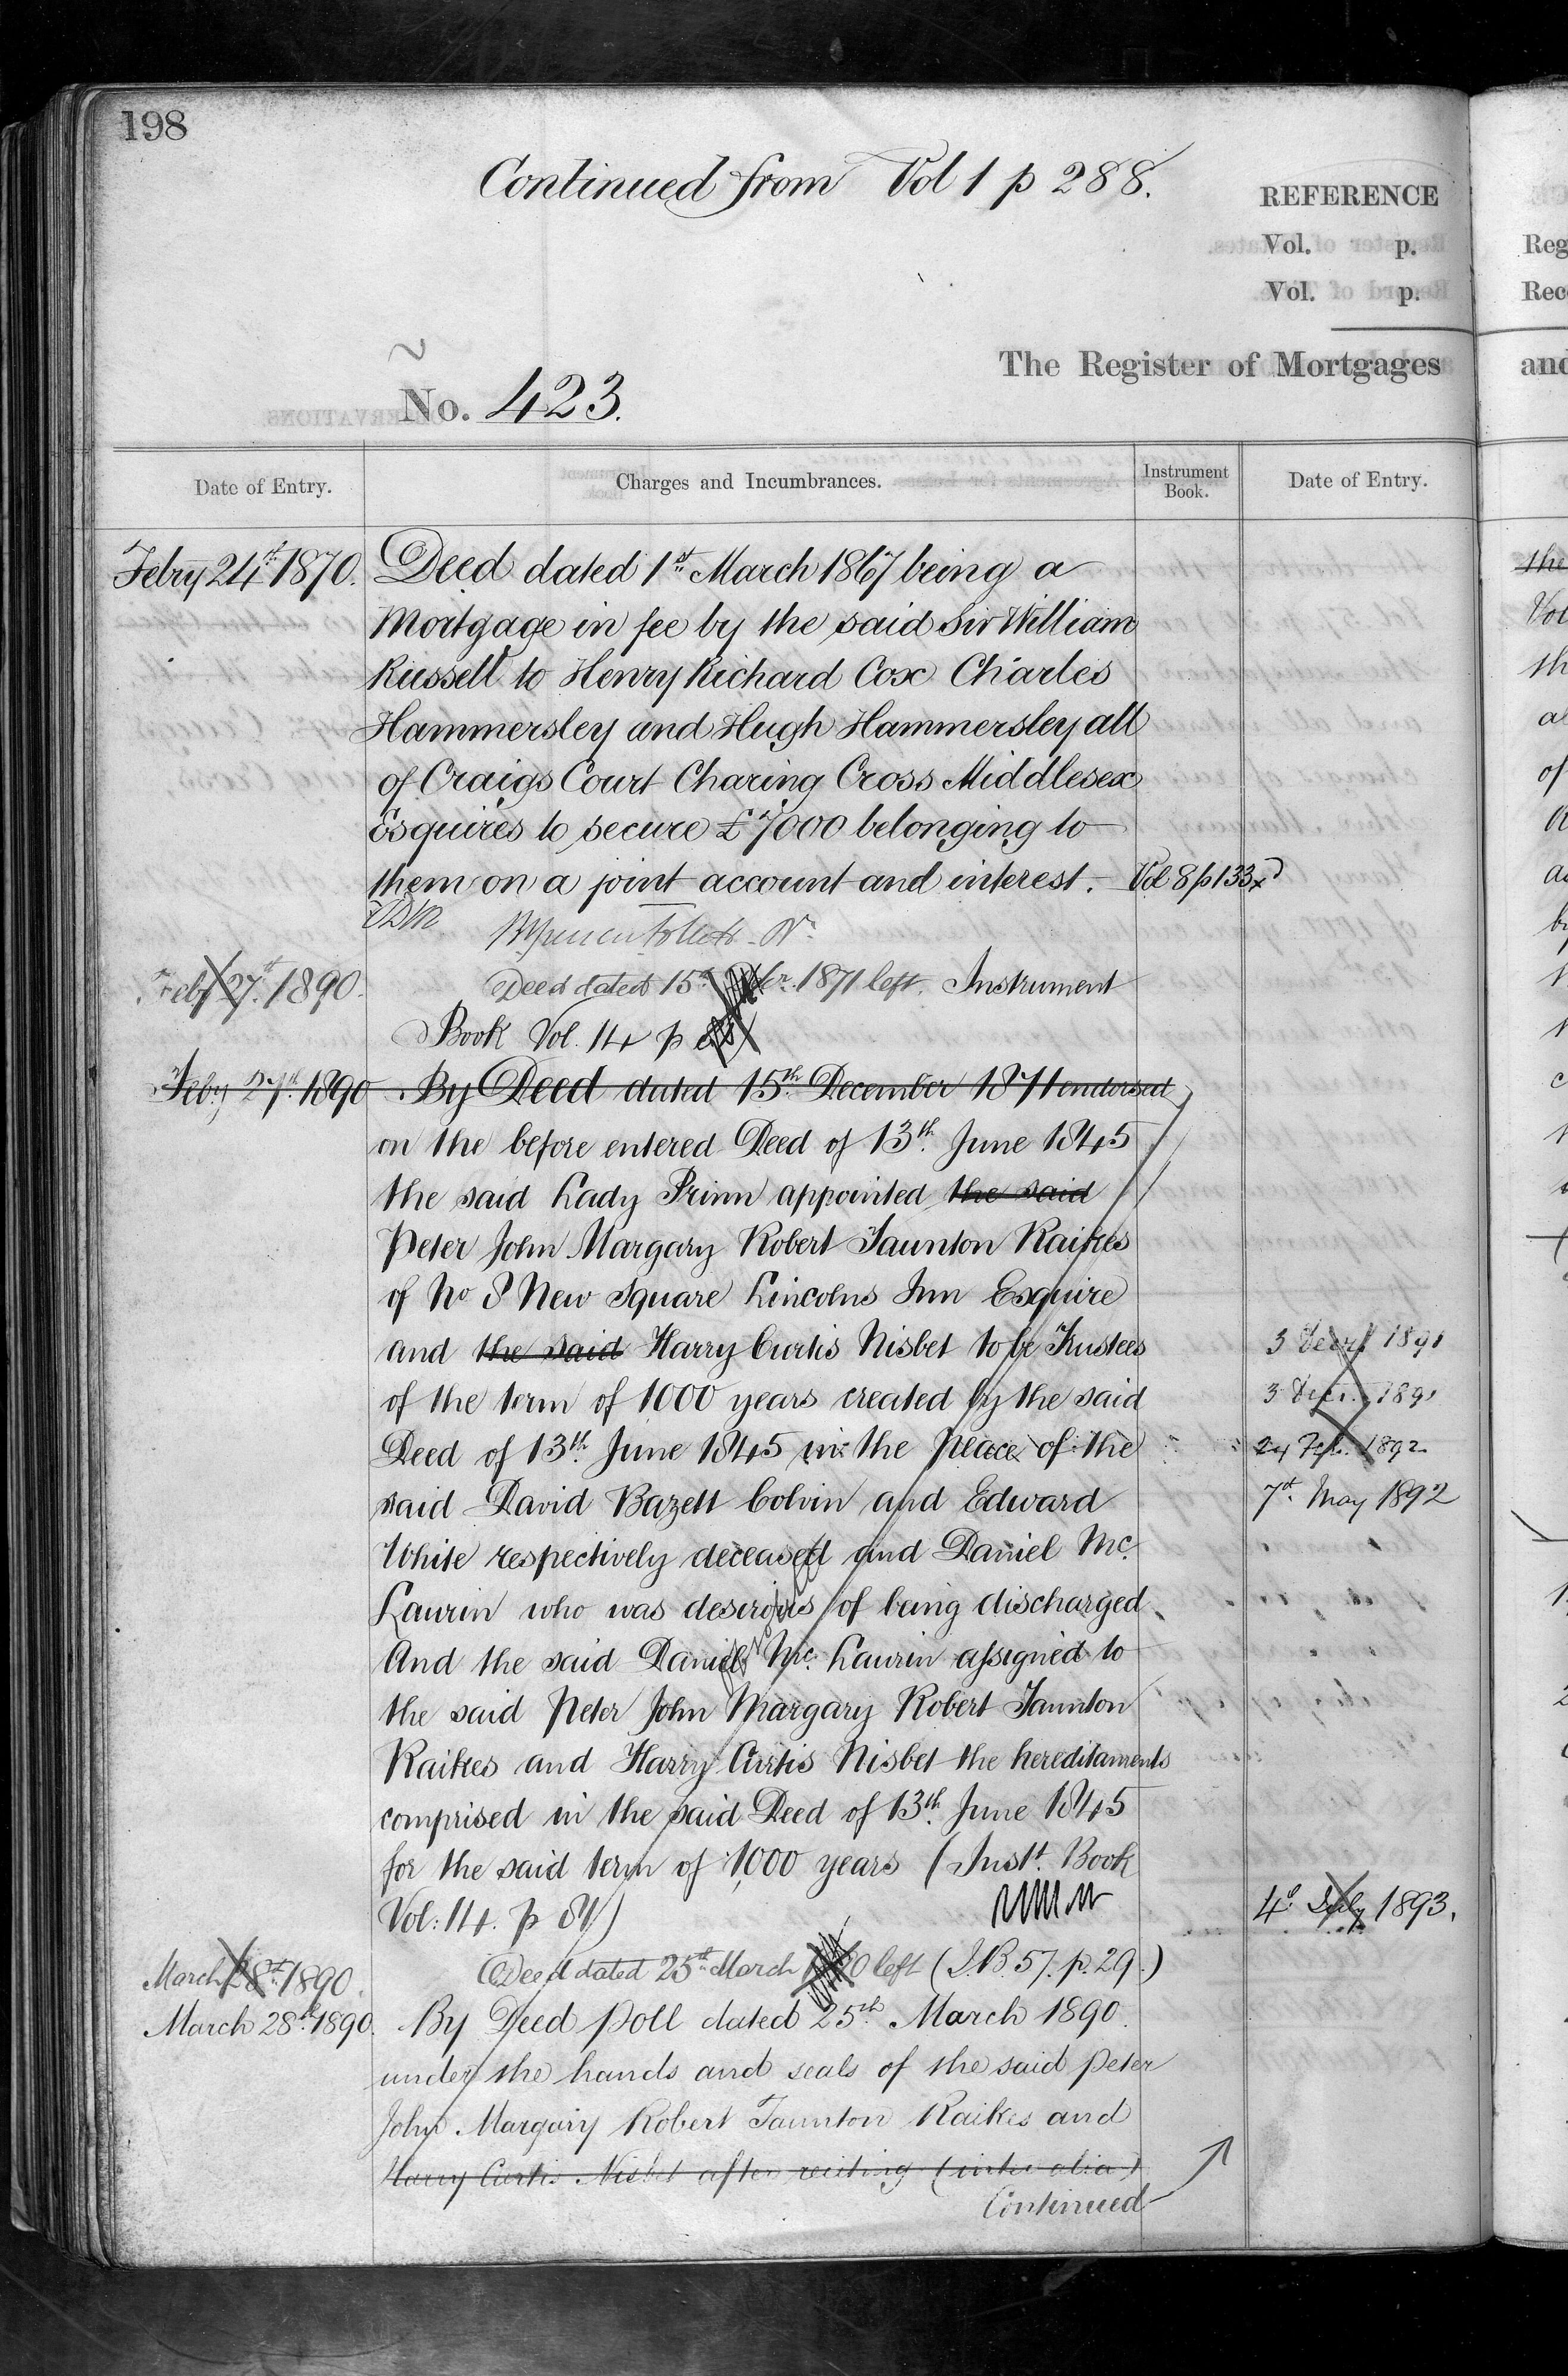 198
Continued from Vol 1 p 288.
REFERENCE
Vol. p.
Vol. p.
The Register of Mortgages
No. 423.
Date of Entry.
Charges and Incumbrances.
Instrument Book.
Date of Entry.
Febry 24th 1870. Deed dated 1st March 1867 being a
Mortgage in fee by the said Sir William
Russell to Henry Richard Cox Charles
Hammersley and Hugh Hammersley all
of Craigs Court Charing Cross Middlesex
Esquires to secure £7000 belonging to
them on a joint account and interest. Vol 8 p 133
Feby 27th 1890. Deed dated 15th 1871 left. Instrument
Book Vol. 14 p
Feby 27th 1890 By Deed dated 15th December 1871 endorsed
on the before entered Deed of 13th June 1845
the said Lady Prinn appointed the said
Peter John Margary Robert Taunton Raikes
of No 8 New Square Lincolns Inn Esquire
and the said Harry Curtis Nisbet to be Trustees
of the term of 1000 years created by the said
Deed of 13th June 1845 in the place of the
said David Bazett Colvin and Edward
White respectively deceased and Daniel Mc.
Laurin who was desirous of being discharged
And the said Daniel Mc. Laurin assigned to
the said Peter John Margary Robert Taunton
Raikes and Harry Curtis Nisbet the hereditaments
comprised in the said Deed of 13th June 1845
for the said term of 1000 years (Instt. Book
Vol: 14. p 81)
March 28th 1890. Deed dated 25th March left (I.B. 57. p. 29.)
March 28th 1890. By Deed Poll dated 25th March 1890.
under the hands and seals of the said Peter
John Margary Robert Taunton Raikes and
Harry Curtis Nisbet after reciting (inter alia)
Continued
3 Decr. 1891
3 Decr. 1891
24 Feb. 1892
7th May 1892
4th July 1893.
Reg
Rec
and
the
Vol
th
of